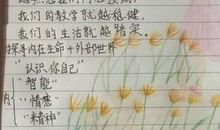 我们的教学就越稳健,
我们的生活就越踏实。
探寻内在生命+外部世界
"认识你自己"
"智能"
内 "情感"
"精神"